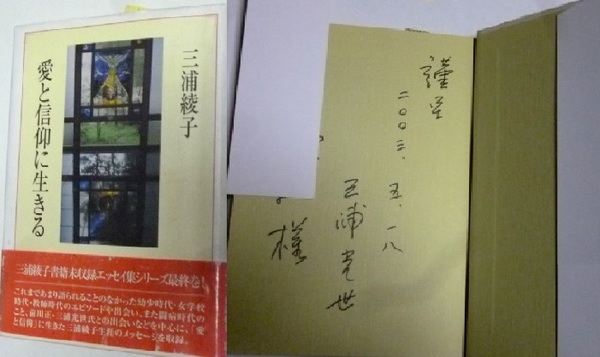 三浦綾子
愛と信仰に生きる
三浦綾子書籍未収録エッセイ集シリーズ最終巻!
これまであまり語られることのなかった幼少時代・女学校
時代・教師時代のエピソードや出会い、また闘病時代の
こと、前川正・三浦光世氏との出会いなどを中心に、「愛
と信仰」に生きた三浦綾子生涯のメッセージを収録。
謹呈
二〇〇三、五、一八
三浦光世
様